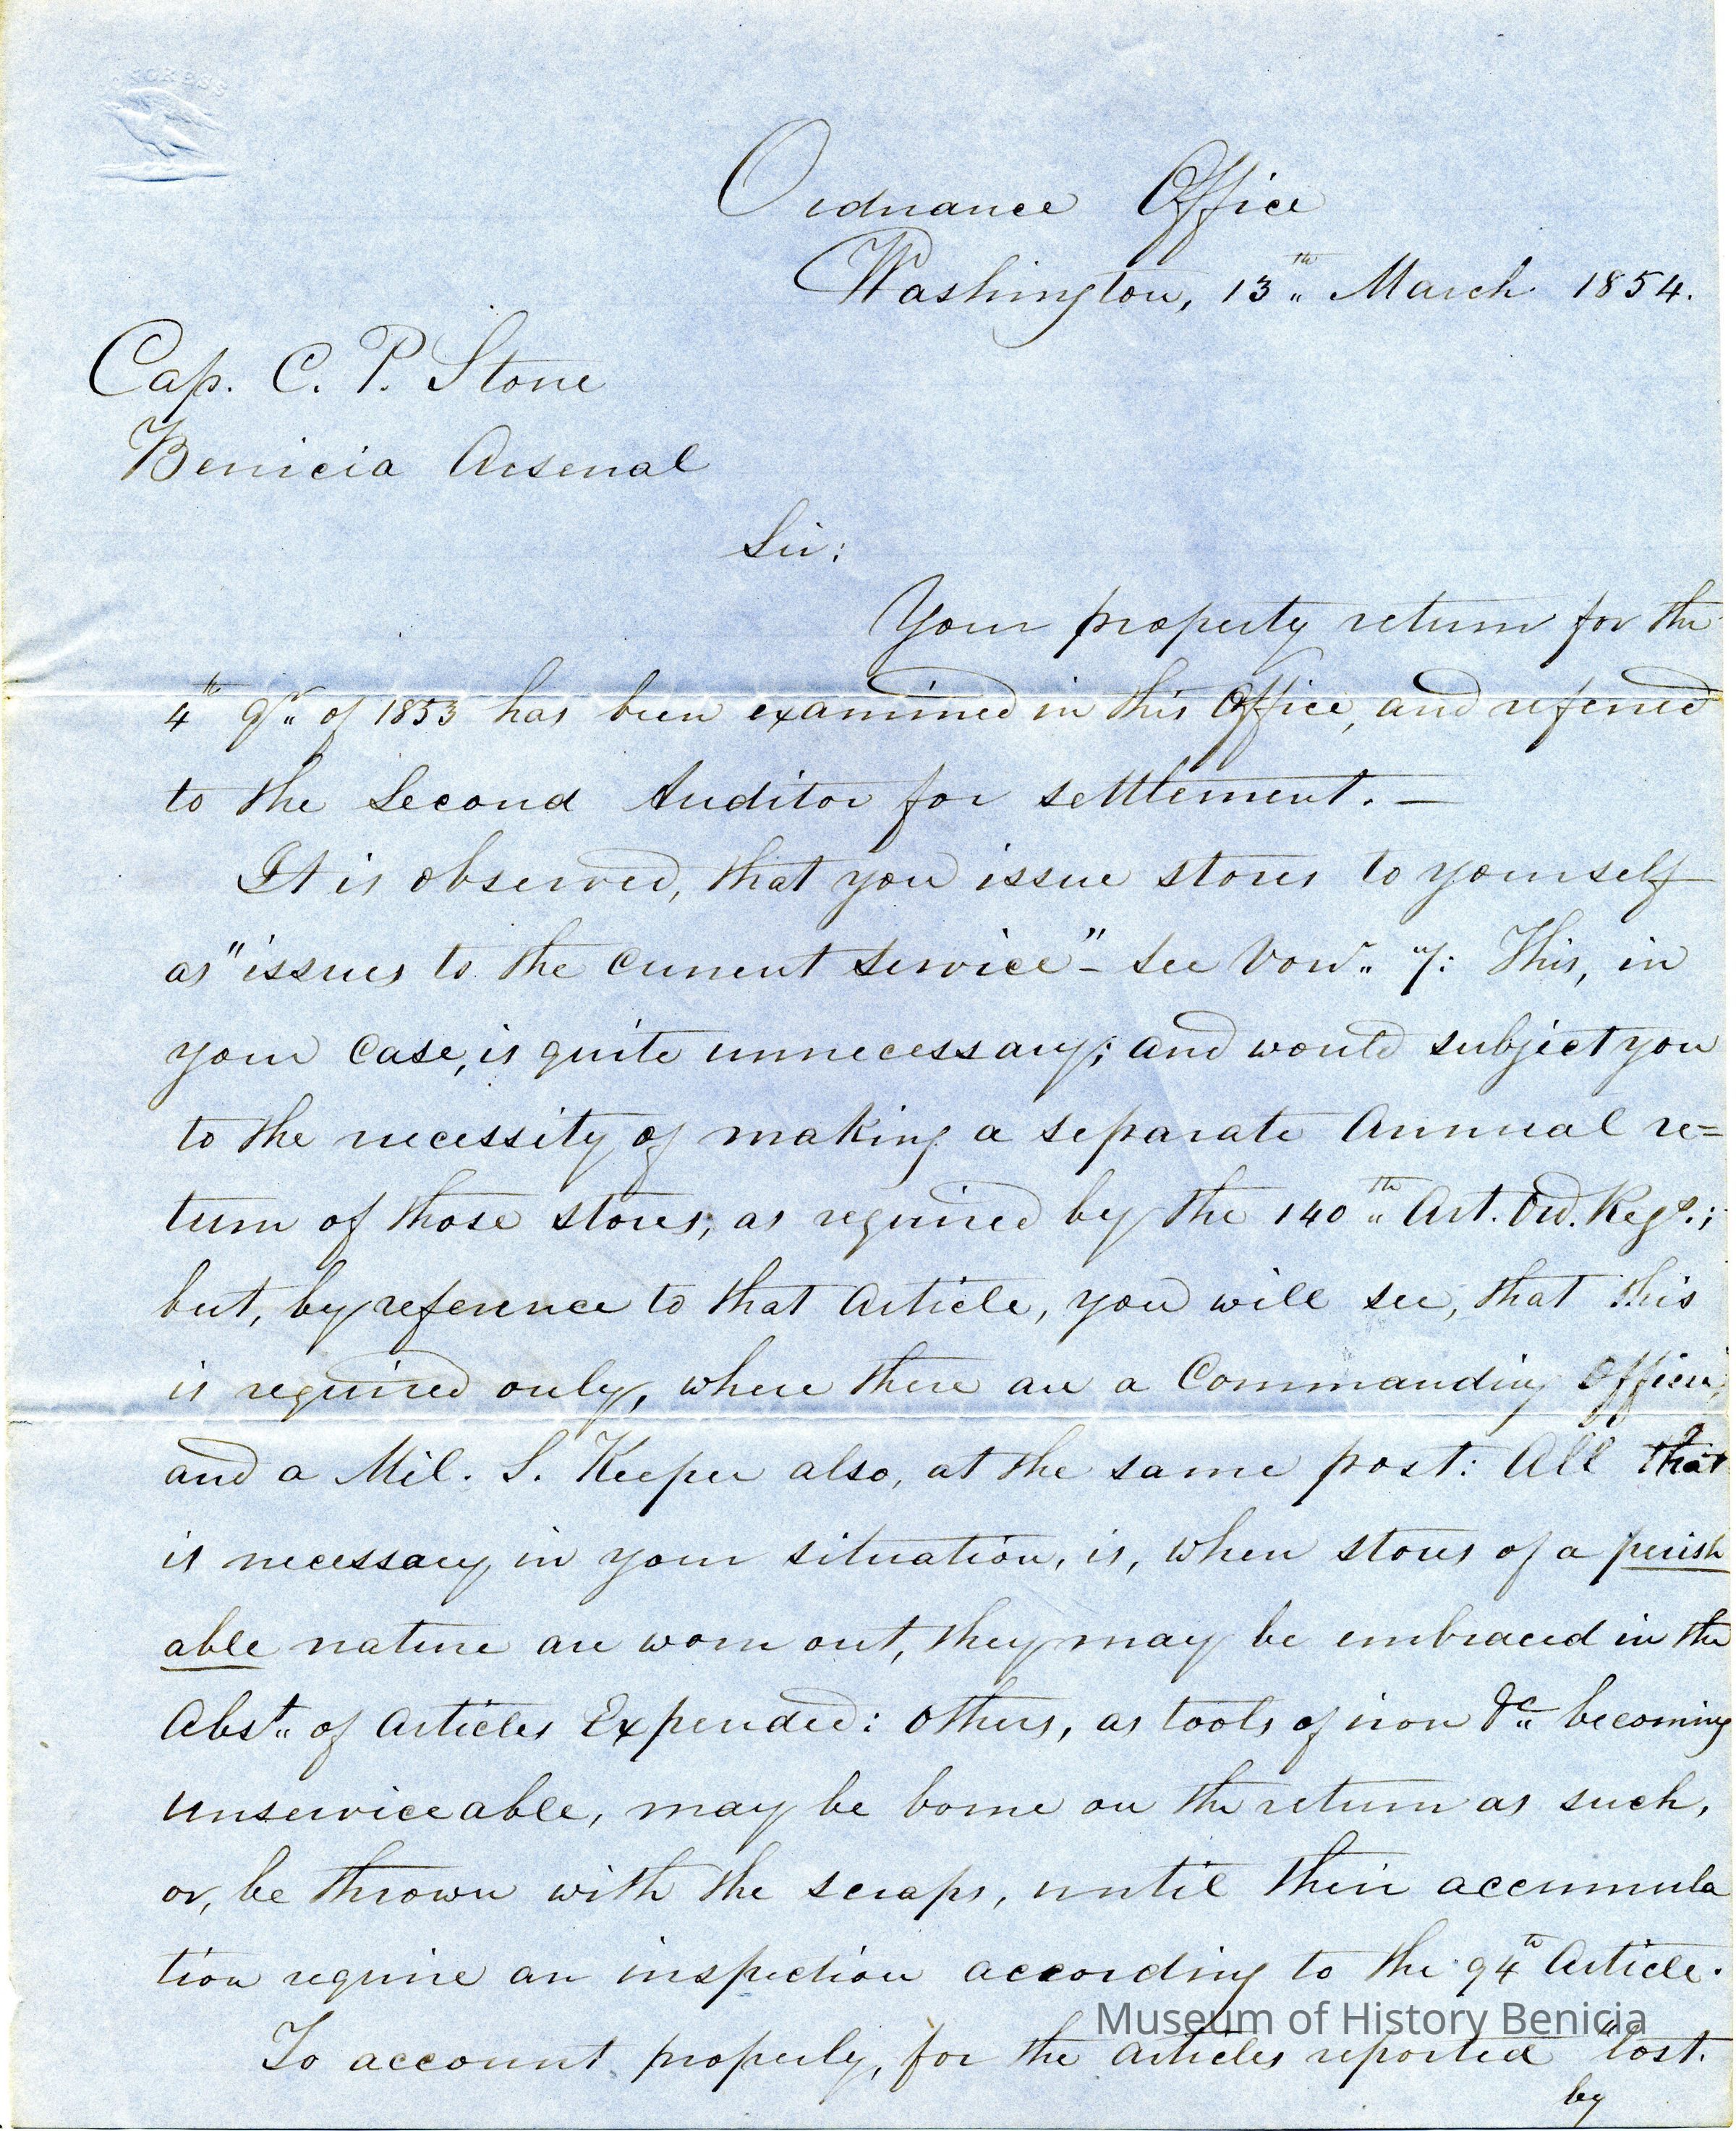 Ordnance Office
Washington, 13th March 1854.
Cap. C. P. Stone
Benicia Arsenal
Sir:
Your property return for the
4th Qr. of 1853 has been examined in this Office, and referred
to the Second Auditor for settlement. —
It is observed, that you issue stores to yourself
as "issues to the current service" - see Vour. 7: This, in
your case, is quite unnecessary; and would subject you
to the necessity of making a separate Annual re=
turn of those stores; as required by the 140th Art. Ord. Regs.;
but, by reference to that Article, you will see, that this
is required only, where there are a Commanding Officer,
and a Mil. S. Keeper also, at the same post: All that
is necessary in your situation, is, when stores of a perish
able nature are worn out, they may be embraced in the
Abst. of Articles Expended: others, as tools of iron &c. becoming
unserviceable, may be borne on the return as such,
or, be thrown with the scraps, until their accumula
tion require an inspection according to the 94th Article.
Museum of History Benicia
To account properly, for the articles reported "lost.
by